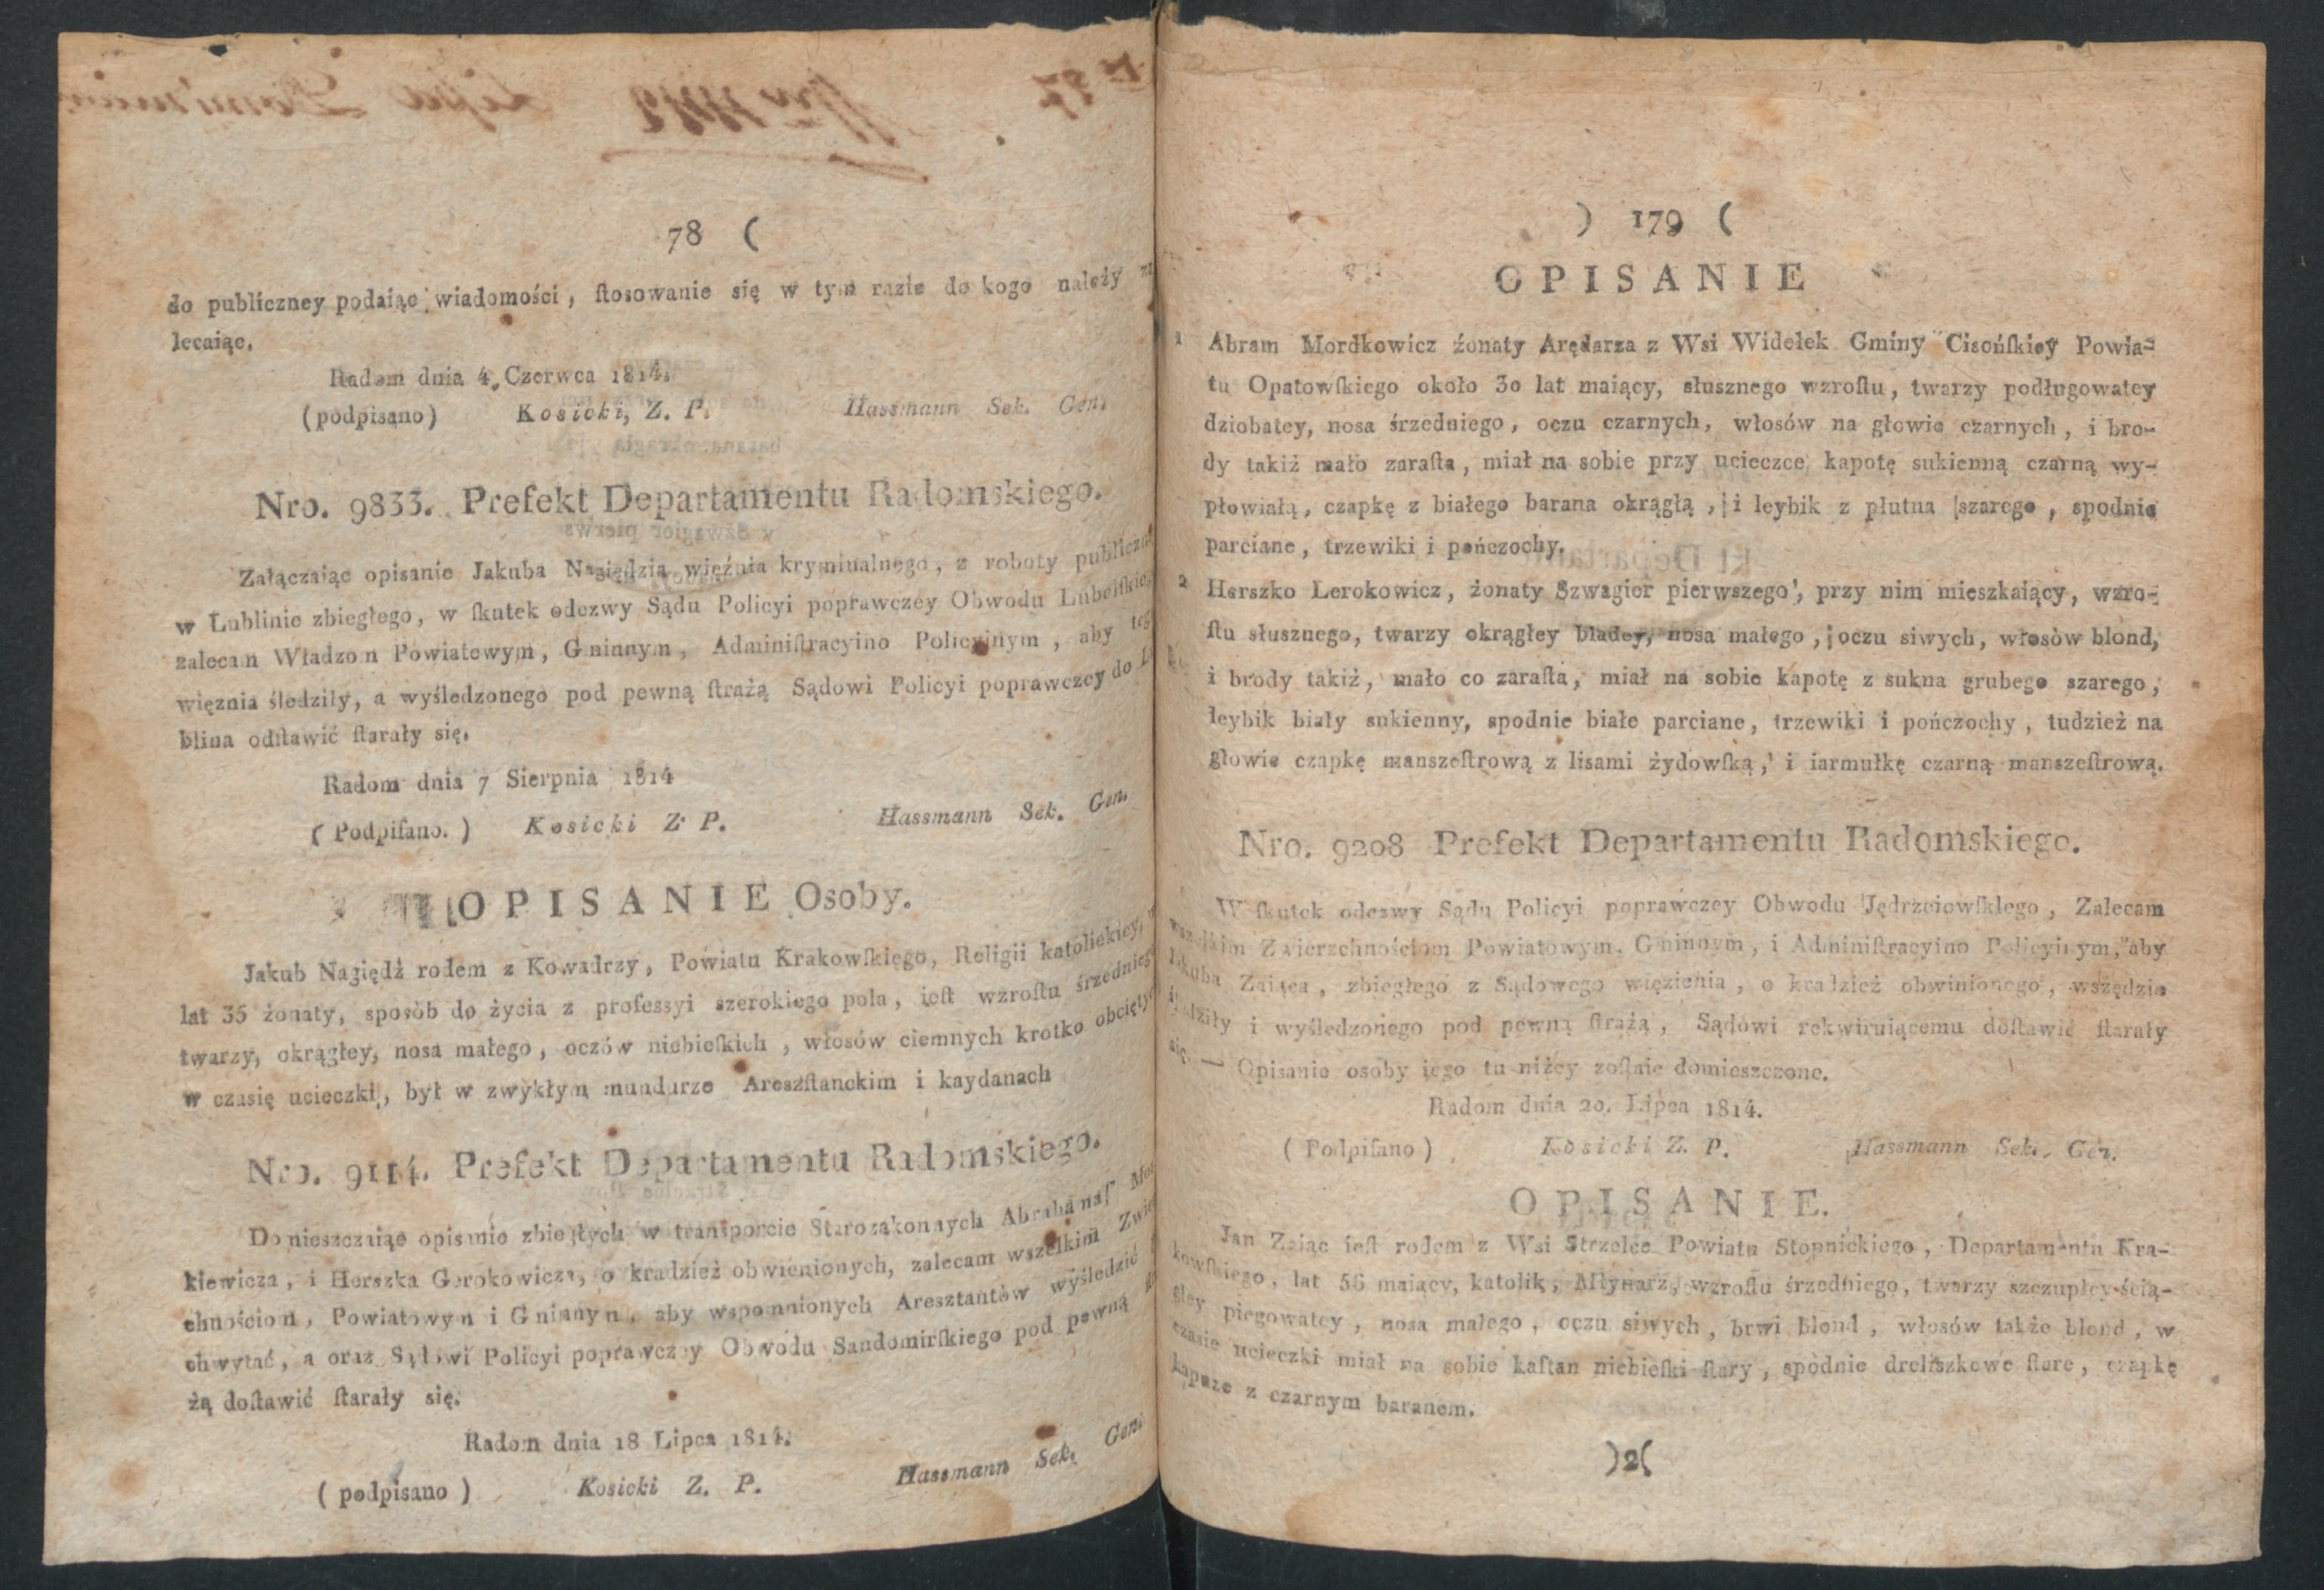 78 (
do publiczney podaiąc wiadomości, ſtosowanie się w tym razie do kogo należy
lecaiąc.
Radom dnia 4. Czerwca 1814.
(podpisano) Kosicki, Z. P. Hassmann Sek. Gen.
Nro. 9833. Prefekt Departamentu Radomskiego.
Załączaiąc opisanie Jakuba więźnia krymiualnego, z roboty
w Lublinie zbiegłego, w ſkutek odezwy Sądu Policyi poprawczey Obwodu
zalecam Władzom Powiatewym, Gminnym, Adminiſtracyino Policyinym, aby
więznia śledziły, a wyśledzonego pod pewną ſtrażą Sądowi Policyi poprawczey do
blina odſtawić ſtarały się.
Radom dnia 7 Sierpnia 1814
( Podpiſano. ) Kosicki Z P. Hassmann Sek. Gen.
OPISANIE Osoby.
Jakub Nagiędź rodem z Kowadrzy, Powiatu Krakowſkiego, Religii katolickiey,
lat 35 żonaty, sposób do życia z professyi szerokiego pola, ieſt wzroſtu
twarzy, okrągłey, nosa małego, oczów niebieſkich, włosów ciemnych krotko
w czasię ucieczki, był w zwykłym mundurze Areszſtanckim i kaydanach
Nro. 9114. Prefekt Departamentu Radomskiego.
Domieszczaiąc opisanie zbiegłych w transporcie Starozakonnych
kiewicza, i Herszka Gerokowicza, o kradzież obwienionych, zalecam wszelkim
chnościom, Powiatowym i Gminnym, aby wspomnionych Aresztantów wyśledzić
chwytać, a oraz Sądowi Policyi poprawczey Obwodu Sandomirſkiego pod pewną
żą doſtawić ſtarały się.
Radom dnia 18 Lipca 1814.
( podpisano ) Kosicki Z. P. Hassmann Sek. Gen.
) 179 (
OPISANIE
1 Abram Mordkowicz żonaty Arędarza z Wsi Widełek Gminy Cisońſkiey Powia-
tu Opatowſkiego około 30 lat maiący, słusznego wzroſtu, twarzy podługowatey
dziobatey, nosa śrzedniego, oczu czarnych, włosów na głowie czarnych, i bro-
dy takiż mało zaraſta, miał na sobie przy ucieczce kapotę sukienną czarną wy-
płowiałą, czapkę z białego barana okrągłą, i leybik z płutna szarego, spodnie
parciane, trzewiki i pończochy.
2 Herszko Lerokowicz, żonaty Szwagier pierwszego, przy nim mieszkaiący, wzro-
ſtu słusznego, twarzy okrągłey bladey, nosa małego, oczu siwych, włosòw blond,
i brody takiż, mało co zaraſta, miał na sobie kapotę z sukna grubego szarego,
leybik biały sukienny, spodnie białe parciane, trzewiki i pończochy, tudzież na
głowie czapkę manszeſtrową z lisami żydowſką, i iarmułkę czarną manszeſtrową.
Nro. 9208 Prefekt Departamentu Radomskiego.
W ſkutek odezwy Sądu Policyi poprawczey Obwodu Jędrzeiowſkiego, Zalecam
wszelkim Zwierzchnościom Powiatowym, Gminnym, i Adminiſtracyino Policyinym, aby
Jakuba Zaiąca, zbiegłego z Sądowego więzienia, o kradzież obwinionego, wszędzie
śledziły i wyśledzonego pod pewną ſtrażą, Sądowi rekwiruiącemu doſtawić ſtarały
się. — Opisanie osoby iego tu niżey zoſtaie domieszczone.
Radom dnia 20. Lipca 1814.
( Podpiſano ) Kosicki Z. P. Hassmann Sek. Gen.
OPISANIE.
Jan Zaiąc ieſt rodem z Wsi Strzelce Powiatu Stopnickiego, Departamentu Kra-
kowſkiego, lat 56 maiący, katolik, Młynarz, wzroſtu śrzedniego, twarzy szczupłey ścią-
gley piegowatey, nosa małego, oczu siwych, brwi blond, włosów także blond, w
czasie ucieczki miał na sobie kaftan niebieſki ſtary, spodnie dreliszkowe ſtare, czapkę
kapuze z czarnym baranem.
)2(